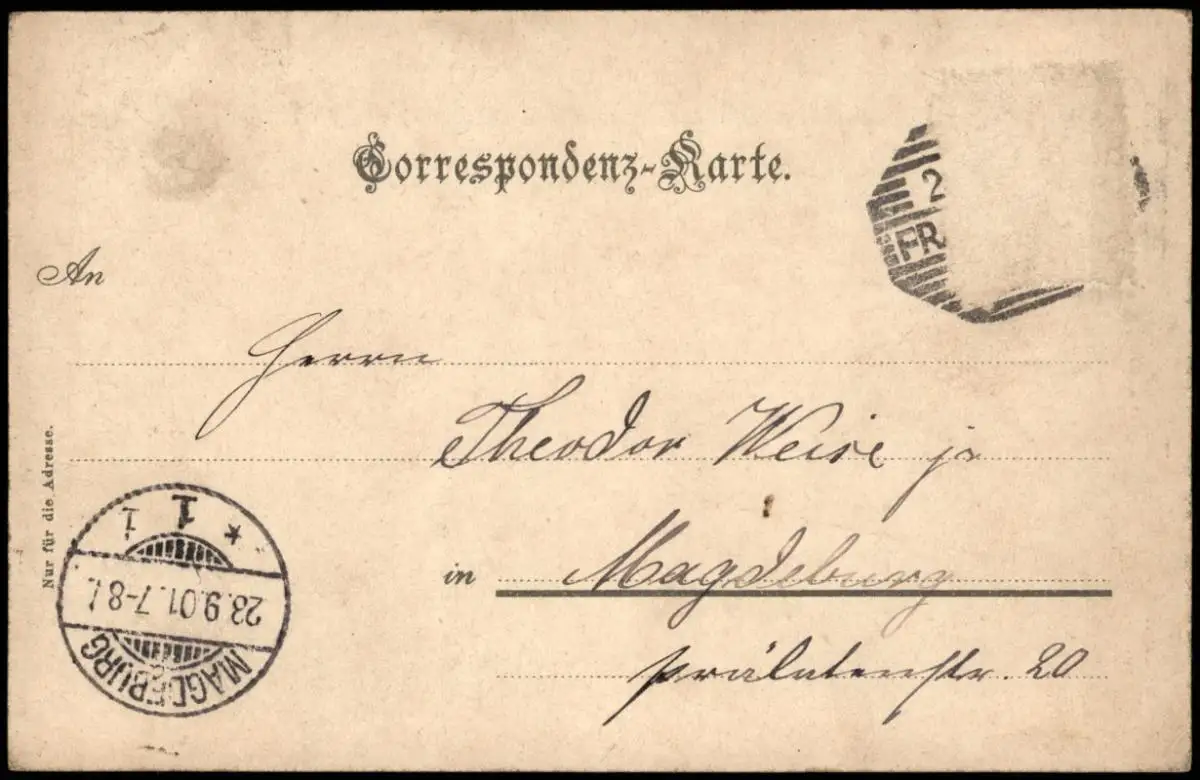 Correspondenz-Karte.
2
FR
An
Herrn
Theodor Weise jr
in Magdeburg
Prälatenstr. 20
Nur für die Adresse.
MAGDEBURG
23.9.01.7-8
* 1